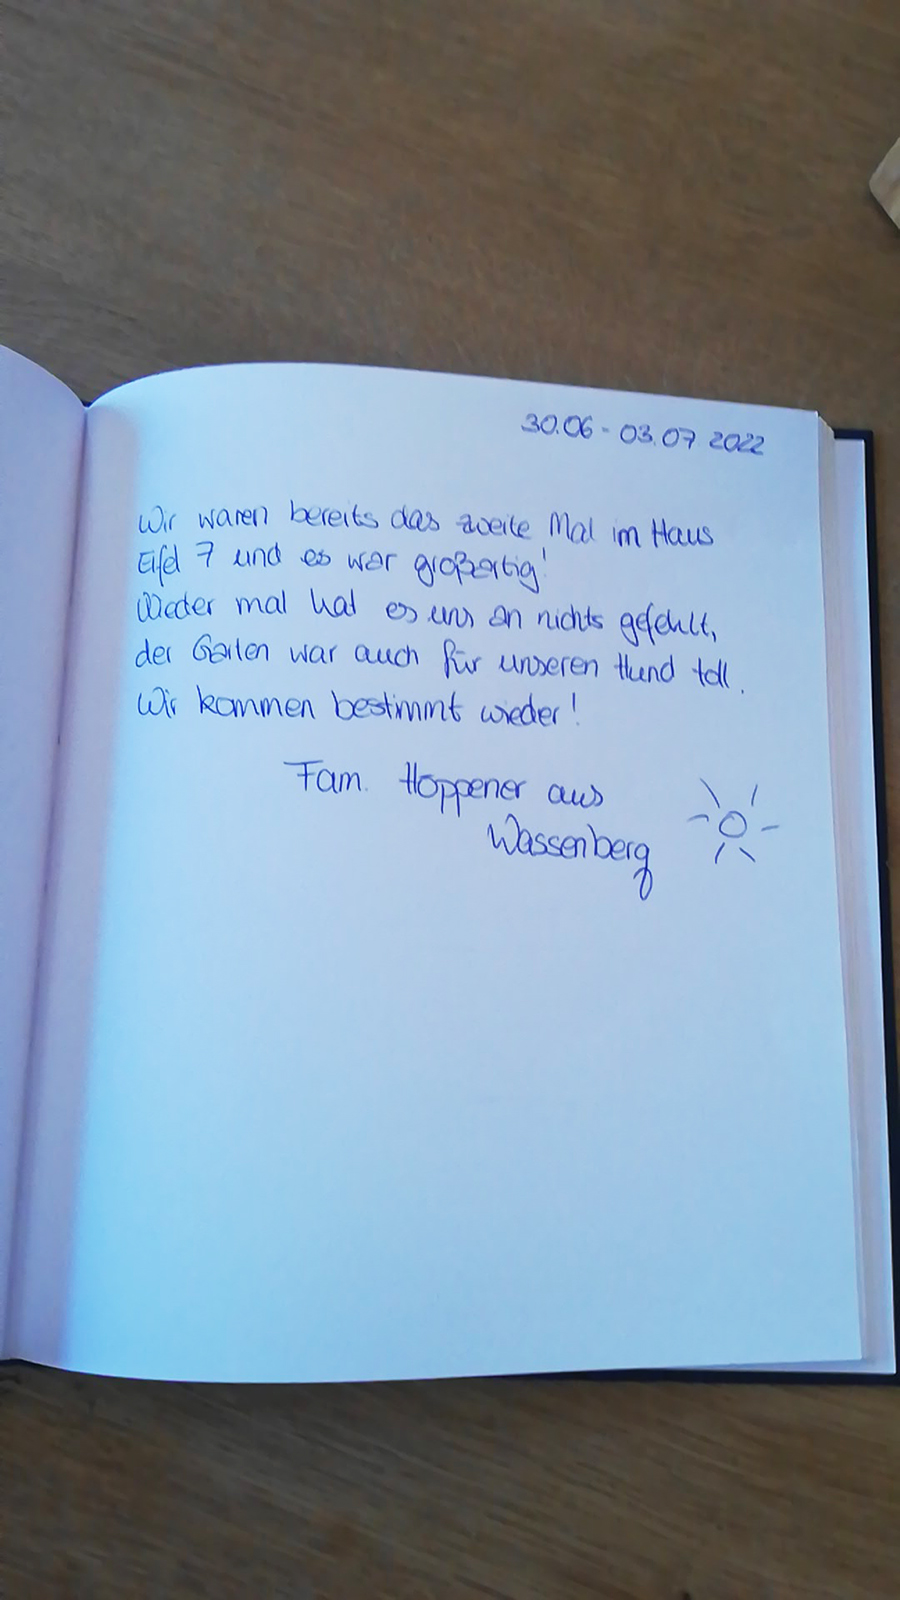 30.06 - 03.07 2022
Wir waren bereits das zweite Mal im Haus
Eifel 7 und es war großartig!
Wieder mal hat es uns an nichts gefehlt,
der Garten war auch für unseren Hund toll.
Wir kommen bestimmt wieder!
Fam. Hoppener aus
Wassenberg